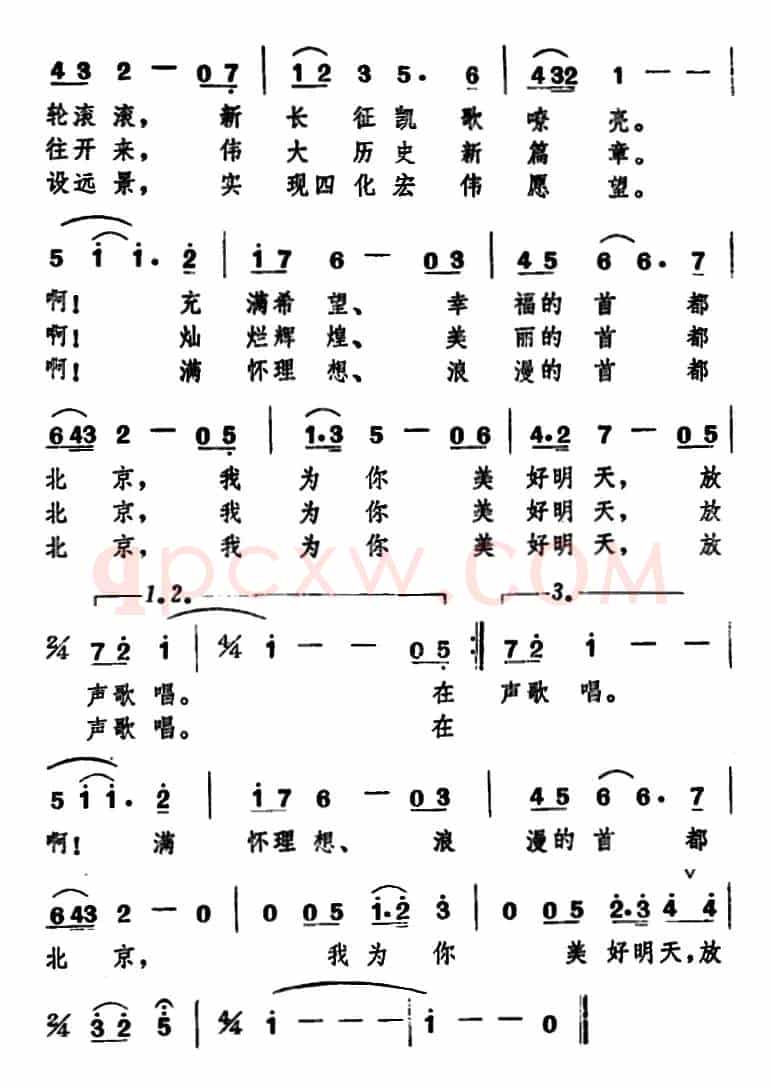 4 3 2 — 0 7 | 1 2 3 5. 6 | 4 3 2 1 — — |
轮滚滚， 新 长 征凯 歌 嘹 亮。
往开来， 伟 大 历史 新 篇 章。
设远景， 实 现四 化宏 伟 愿 望。
5 1 1. 2 | 1 7 6 — 0 3 | 4 5 6 6. 7 |
啊！ 充 满希 望、 幸 福的 首 都
啊！ 灿 烂辉 煌、 美 丽的 首 都
啊！ 满 怀理 想、 浪 漫的 首 都
6 4 3 2 — 0 5 | 1. 3 5 — 0 6 | 4. 2 7 — 0 5 |
北 京， 我 为 你 美 好明 天， 放
北 京， 我 为 你 美 好明 天， 放
北 京， 我 为 你 美 好明 天， 放
qpcxw.COM
1. 2. 3.
2/4 7 2 1 | 4/4 1 — — 0 5 :‖ 7 2 1 — — |
声歌 唱。 在 声歌 唱。
声歌 唱。 在
5 1 1. 2 | 1 7 6 — 0 3 | 4 5 6 6. 7 |
啊！ 满 怀理 想、 浪 漫的 首 都
6 4 3 2 — 0 | 0 0 5 1. 2 3 | 0 0 5 2. 3 4 ∨ 4 |
北 京， 我 为 你 美 好明天，放
2/4 3 2 5 | 4/4 1 — — — | 1 — — 0 ‖